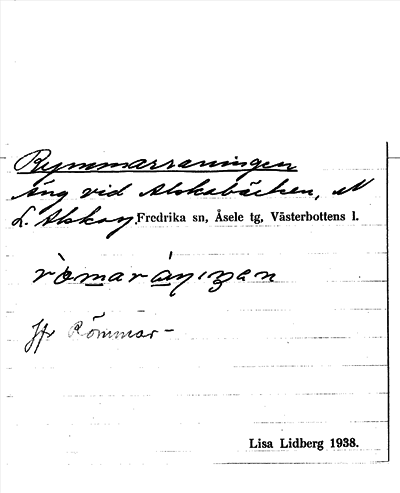 Rymmarraningen
Äng vid Alskabäcken, N
L. Alskoy. Fredrika sn, Åsele tg, Västerbottens l.
ròmarániŋen
jfr Römmar-
Lisa Lidberg 1938.